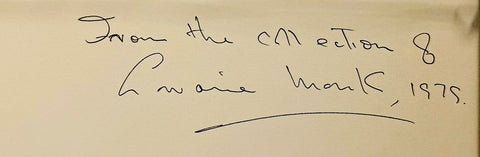 From the collection of
Lorraine Monk, 1979.